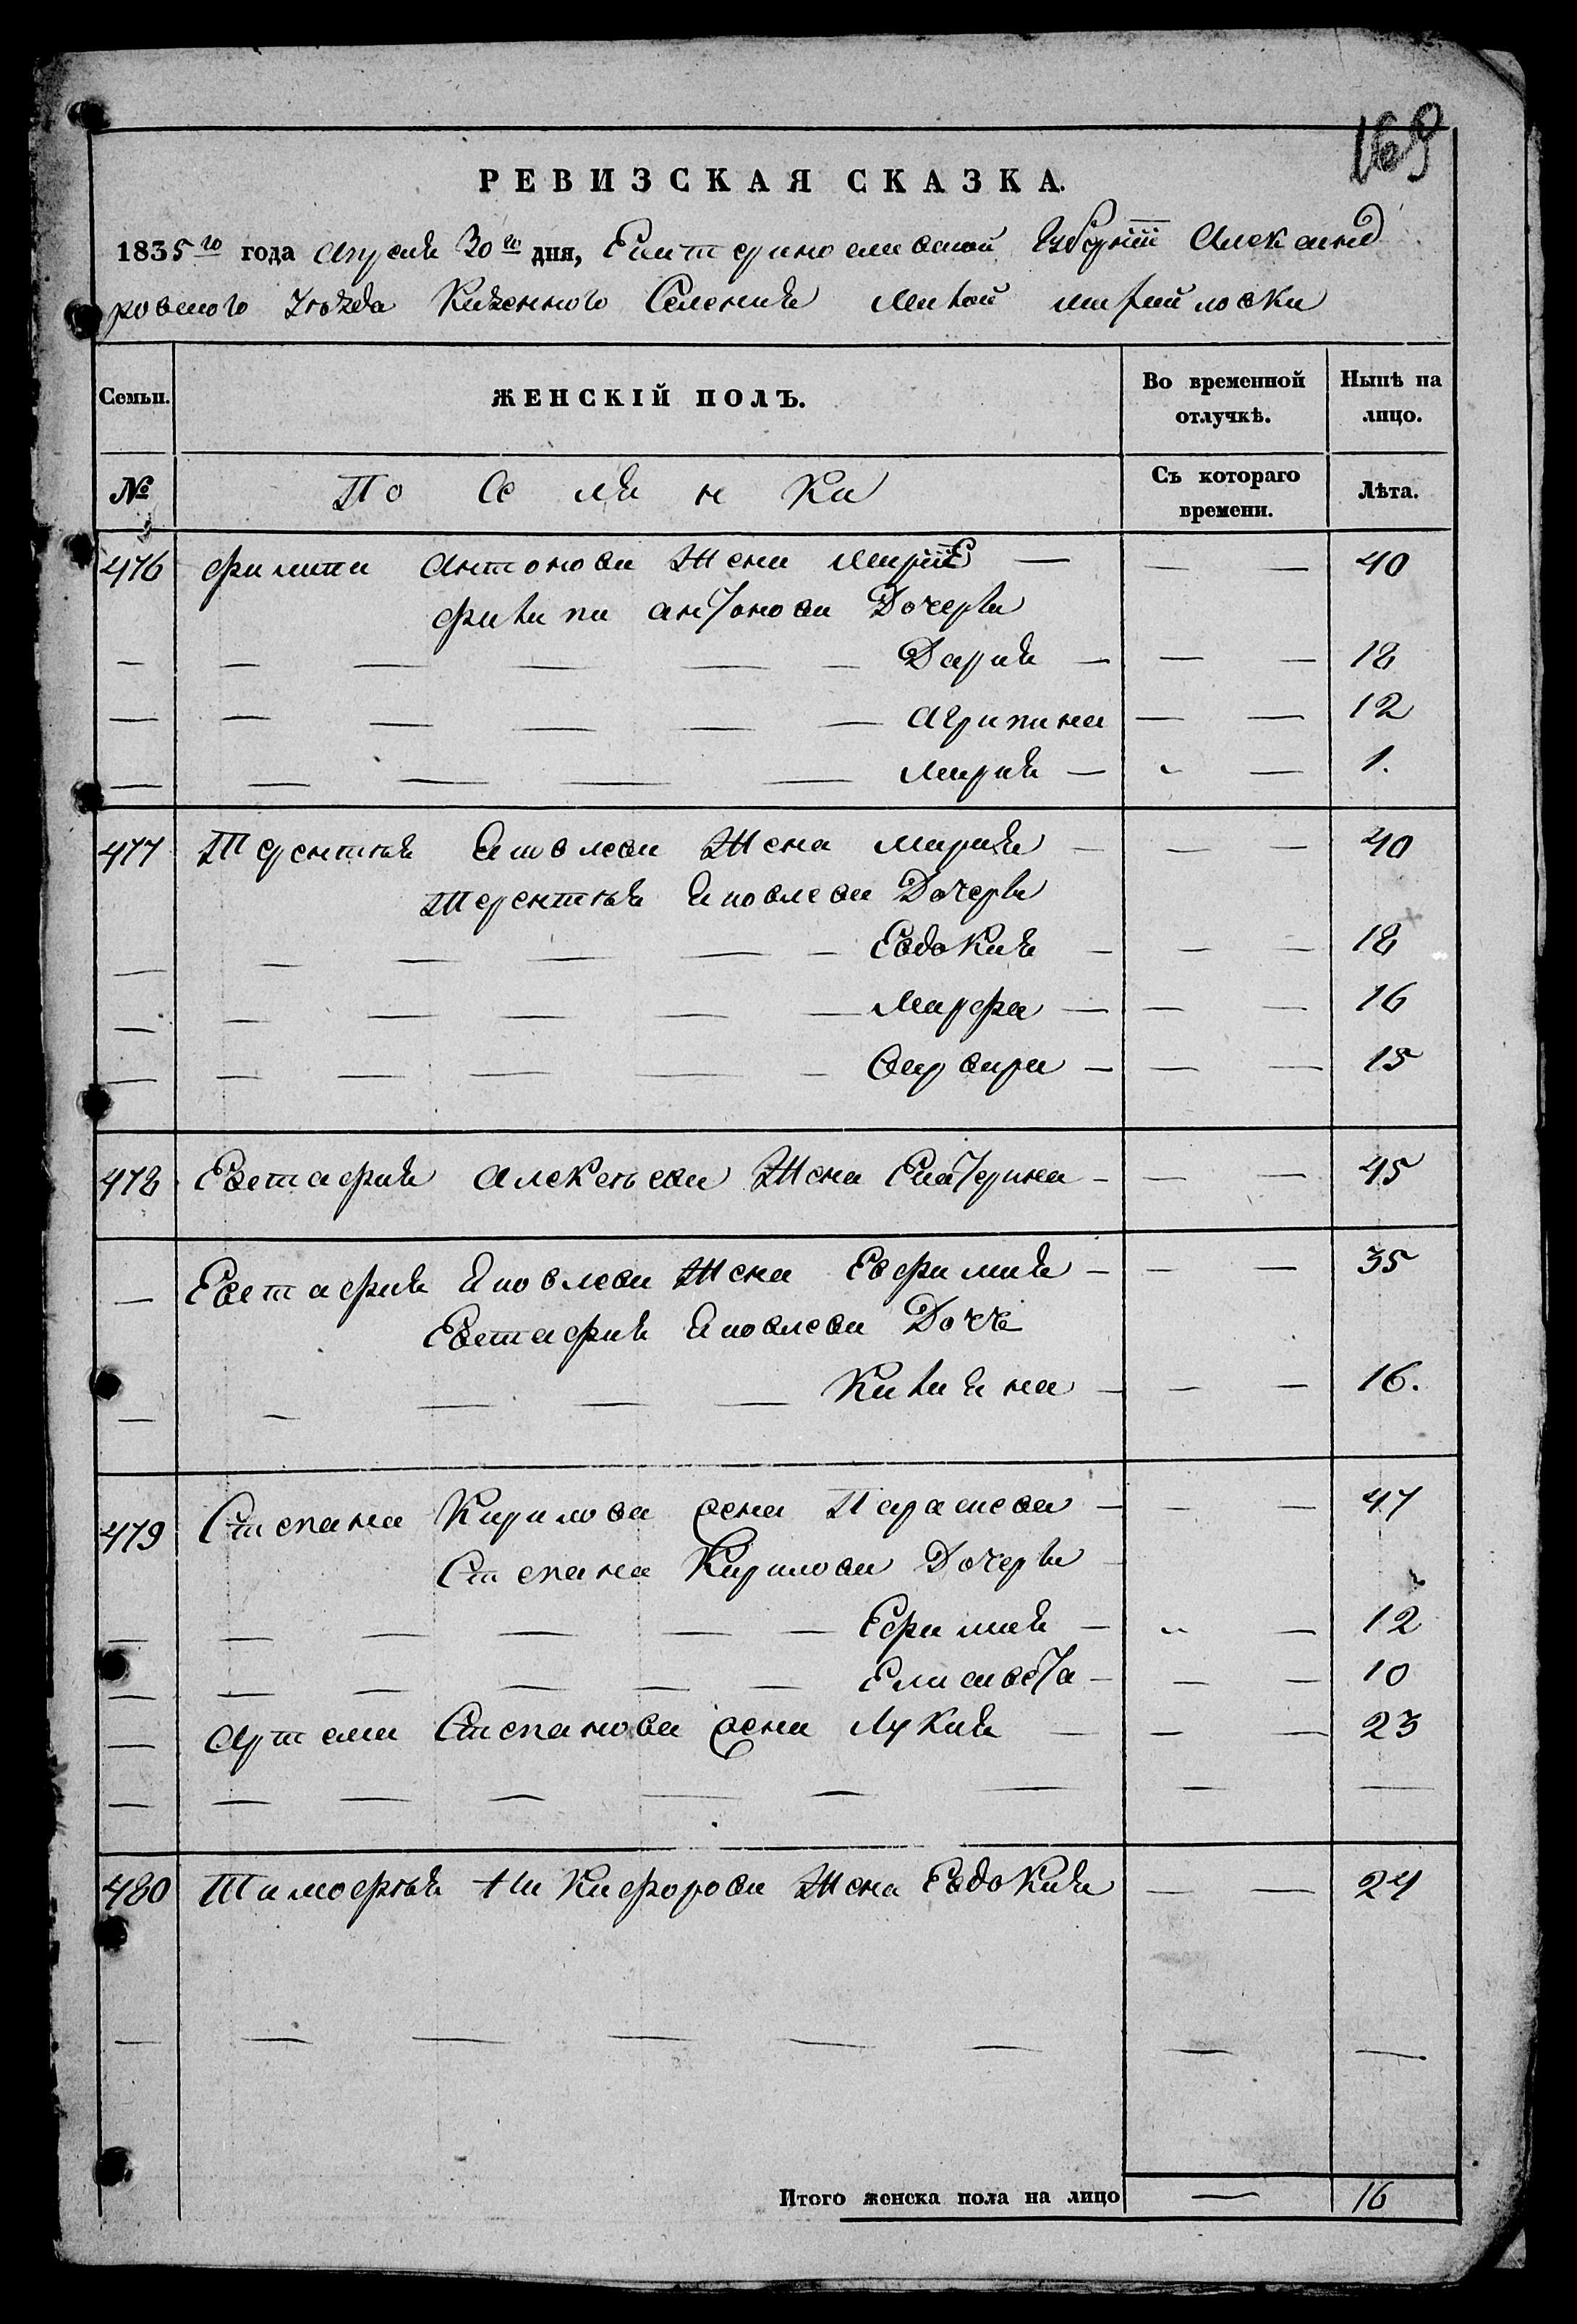 169
РЕВИЗСКАЯ СКАЗКА.
1835го года Апреля 30го дня, Екатеринославской Губернии Александ
ровского Уезда Казенного Селения Малой михайловки
Семьи. ЖЕНСКІЙ ПОЛЪ. Во временной отлучкѣ. Нынѣ на лицо.
№ По Се ля н ки Съ котораго времени. Лѣта.
476 Филипа Антонова Жена Мария — — — 40
Филипа антонова Дочери
— — — — — — Дария — — — 18
— — — — — — Агрипина — — 12
— — — — — — Мария — — — 1.
477 Терентъя Яковлева Жена Мария — — — 40
Терентъя Яковлева Дочери
— — — — — — Евдокия — — — 18
— — — — — — Марфа — — — 16
— — — — — — Варвара — — — 15
478 Евстафия Алексъева Жена Екатерина — — — 45
— Евстафия Яковлева Жена Евфимия — — — 35
Евстафия Яковлева Дочь
— — — — — Килияна — — — 16.
479 Степана Кирилова жена Параскева — — — 47
Степана Кирилова Дочери
— — — — — — Ефимия — — — 12
— — — — — — Елисавета — — — 10
— Артема Степанова жена Лукия — — — 23
— — — — — — — — —
480 Тимофъя Никифорова Жена Евдокия — — 24
— — — — — — — —
Итого женска пола на лицо — 16